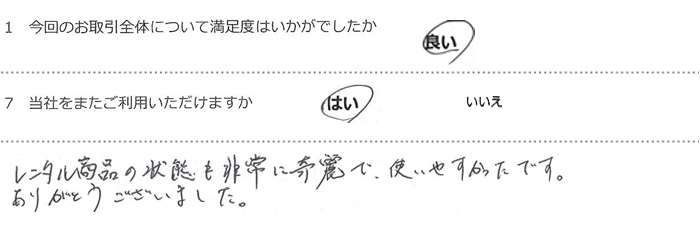 1 今回のお取引全体について満足度はいかがでしたか 良い
7 当社をまたご利用いただけますか はい いいえ
レンタル商品の状態も非常に奇麗で、使いやすかったです。
ありがとうございました。